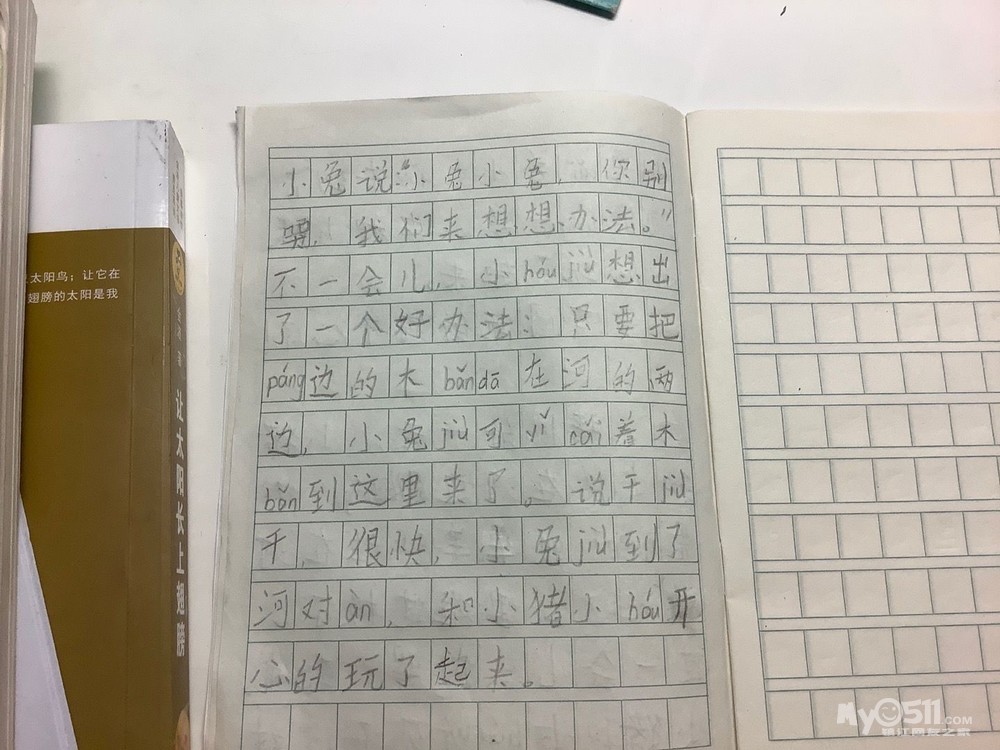 太阳鸟；让它在
翅膀的太阳是我
让太阳长上翅膀
小兔说：“小兔小兔，你别
，我们来想想办法。”
不一会儿，小hóu jiù想出
了一个好办法：只要把
páng边的木bǎn dā在河的两
边，小兔jiù可yǐ cǎi着木
bǎn到这里来了。说干jiù
干，很快，小兔jiù到了
河对àn，和小猪小hóu开
心的玩了起来。
My0511.COM